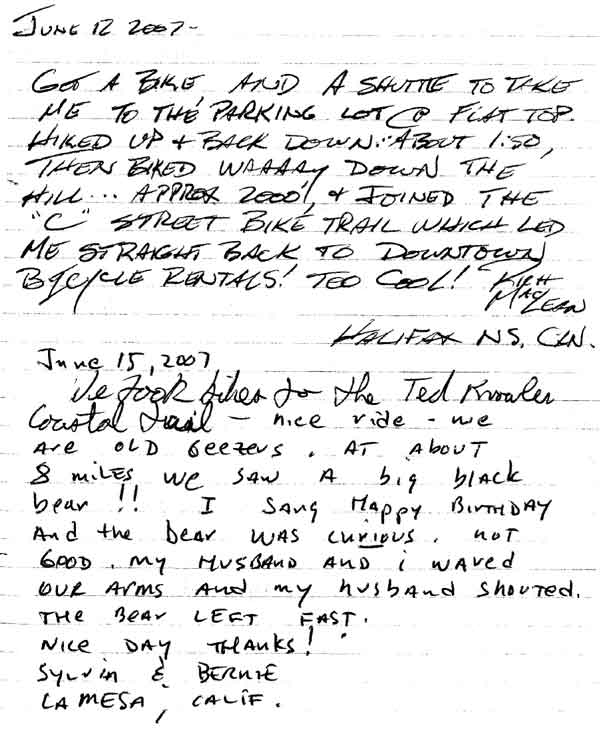 JUNE 12 2007-
GOT A BIKE AND A SHUTTLE TO TAKE
ME TO THE PARKING LOT @ FLAT TOP.
HIKED UP + BACK DOWN: ABOUT 1:50,
THEN BIKED WAAAAY DOWN THE
HILL... APPROX 2000', & JOINED THE
"C" STREET BIKE TRAIL WHICH LED
ME STRAIGHT BACK TO DOWNTOWN
BICYCLE RENTALS! TOO COOL!
MACLEAN
HALIFAX NS, CDN.
June 15, 2007
We took bikes to the Ted Knowles
Coastal trail - nice ride - we
are OLD GEEZERS. AT About
8 miles we saw A big black
bear!! I SANG HAPPY BIRTHDAY
And the bear WAS curious. not
GOOD. my HUSBAND AND i waved
our Arms And my husband shouted.
THE BEAR LEFT FAST.
NICE DAY THANKS!
Sylvia & BERNIE
LA MESA, CALIF.